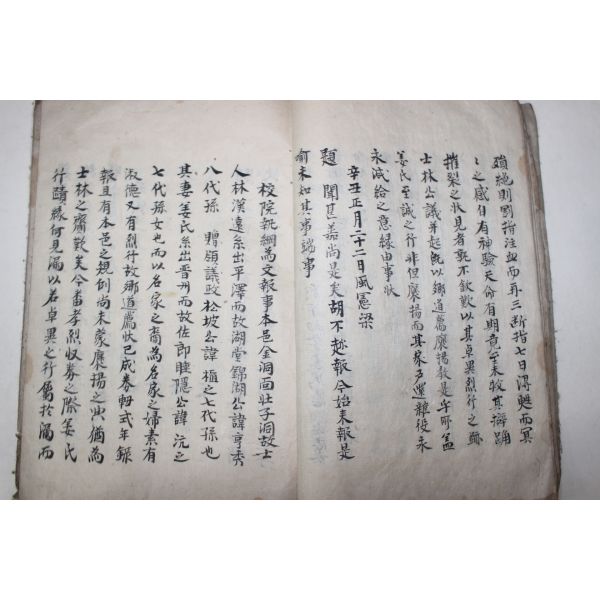 殞絶則國指注血而再三斷指七日得甦而冥
之感自有神驗天命有期竟至未救其擗踊
摧裂之狀見者孰不欽歎以其卓異烈行之跡
士林公議並起既以鄉道薦褒揚敎是乎所盖
姜氏至誠之行非但褒揚而其家戶還雜役永
永減給之意緣由事狀
辛丑正月二十二日風憲梁
題 聞甚嘉尚是矣胡不趁報今始來報是
喩未知其事端事
校院執綱為文報事本邑金洞面壯子洞故士
人林漢遠系出平澤而故湖堂錦湖公諱亨秀
八代孫 贈領議政松坡公諱 㮒之七代孫也
其妻姜氏系出晋州而故佐郎睡隱公諱 沆之
七代孫女也而以名家之裔為名家之婦素有
淑德又有烈行故鄉道薦狀已成券軸式年錄
報且有本邑之規例尚未蒙褒揚之典猶為
士林之齎歎矣今番孝烈收券之際姜氏
行蹟緣何見漏以若卓異之行屬於漏而